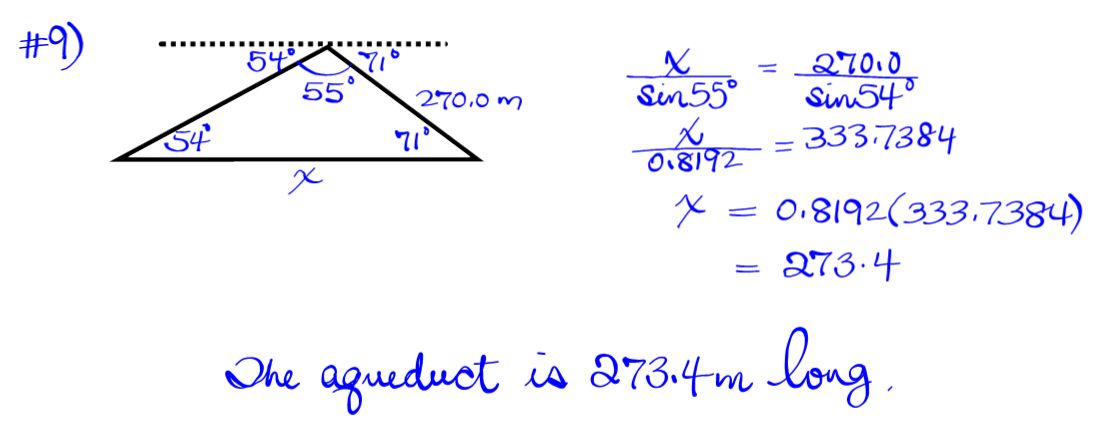 #9)
54° 71°
55°
270.0 m
54° 71°
x
x/sin55° = 270.0/sin54°
x/0.8192 = 333.7384
x = 0.8192(333.7384)
= 273.4
The aqueduct is 273.4m long.